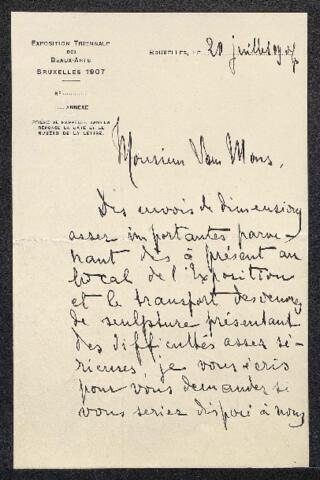 EXPOSITION TRIENNALE
DES
BEAUX-ARTS
BRUXELLES 1907
N°
ANNEXE
PRIÈRE DE RAPPELER DANS LA
RÉPONSE LA DATE ET LE
NUMÉRO DE LA LETTRE.
BRUXELLES, LE 20 juillet 1907
Monsieur Van Mons,
Des envois de dimensions
assez importantes parve-
nant dès à présent au
local de l'Exposition
et le transport des œuvres
de sculpture présentant
des difficultés assez sé-
rieuses, je vous écris
pour vous demander si
vous seriez disposé à nous